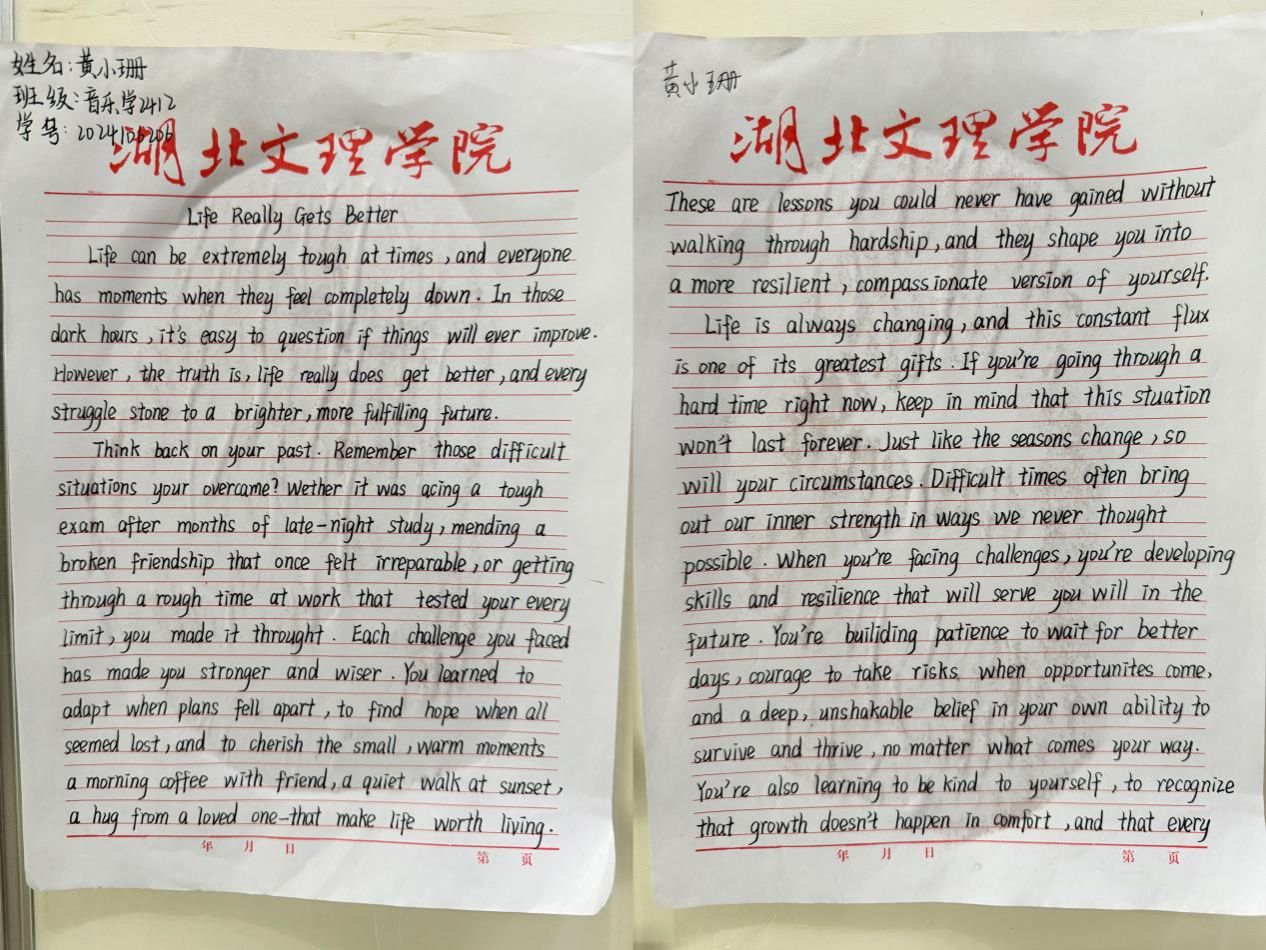 姓名：黄小珊
班级：音乐学2412
学号：
湖北文理学院
Life Really Gets Better
Life can be extremely tough at times, and everyone
has moments when they feel completely down. In those
dark hours, it's easy to question if things will ever improve.
However, the truth is, life really does get better, and every
struggle stone to a brighter, more fulfilling future.
Think back on your past. Remember those difficult
situations your overcame? Wether it was acing a tough
exam after months of late-night study, mending a
broken friendship that once felt irreparable, or getting
through a rough time at work that tested your every
limit, you made it throught. Each challenge you faced
has made you stronger and wiser. You learned to
adapt when plans fell apart, to find hope when all
seemed lost, and to cherish the small, warm moments
a morning coffee with friend, a quiet walk at sunset,
a hug from a loved one-that make life worth living.
年 月 日 第 页
黄小珊
湖北文理学院
These are lessons you could never have gained without
walking through hardship, and they shape you into
a more resilient, compassionate version of yourself.
Life is always changing, and this constant flux
is one of its greatest gifts. If you're going through a
hard time right now, keep in mind that this stuation
won't last forever. Just like the seasons change, so
will your circumstances. Difficult times often bring
out our inner strength in ways we never thought
possible. When you're facing challenges, you're developing
skills and resilience that will serve you will in the
future. You're builiding patience to wait for better
days, courage to take risks when opportunites come,
and a deep, unshakable belief in your own ability to
survive and thrive, no matter what comes your way.
You're also learning to be kind to yourself, to recognize
that growth doesn't happen in comfort, and that every
年 月 日 第 页